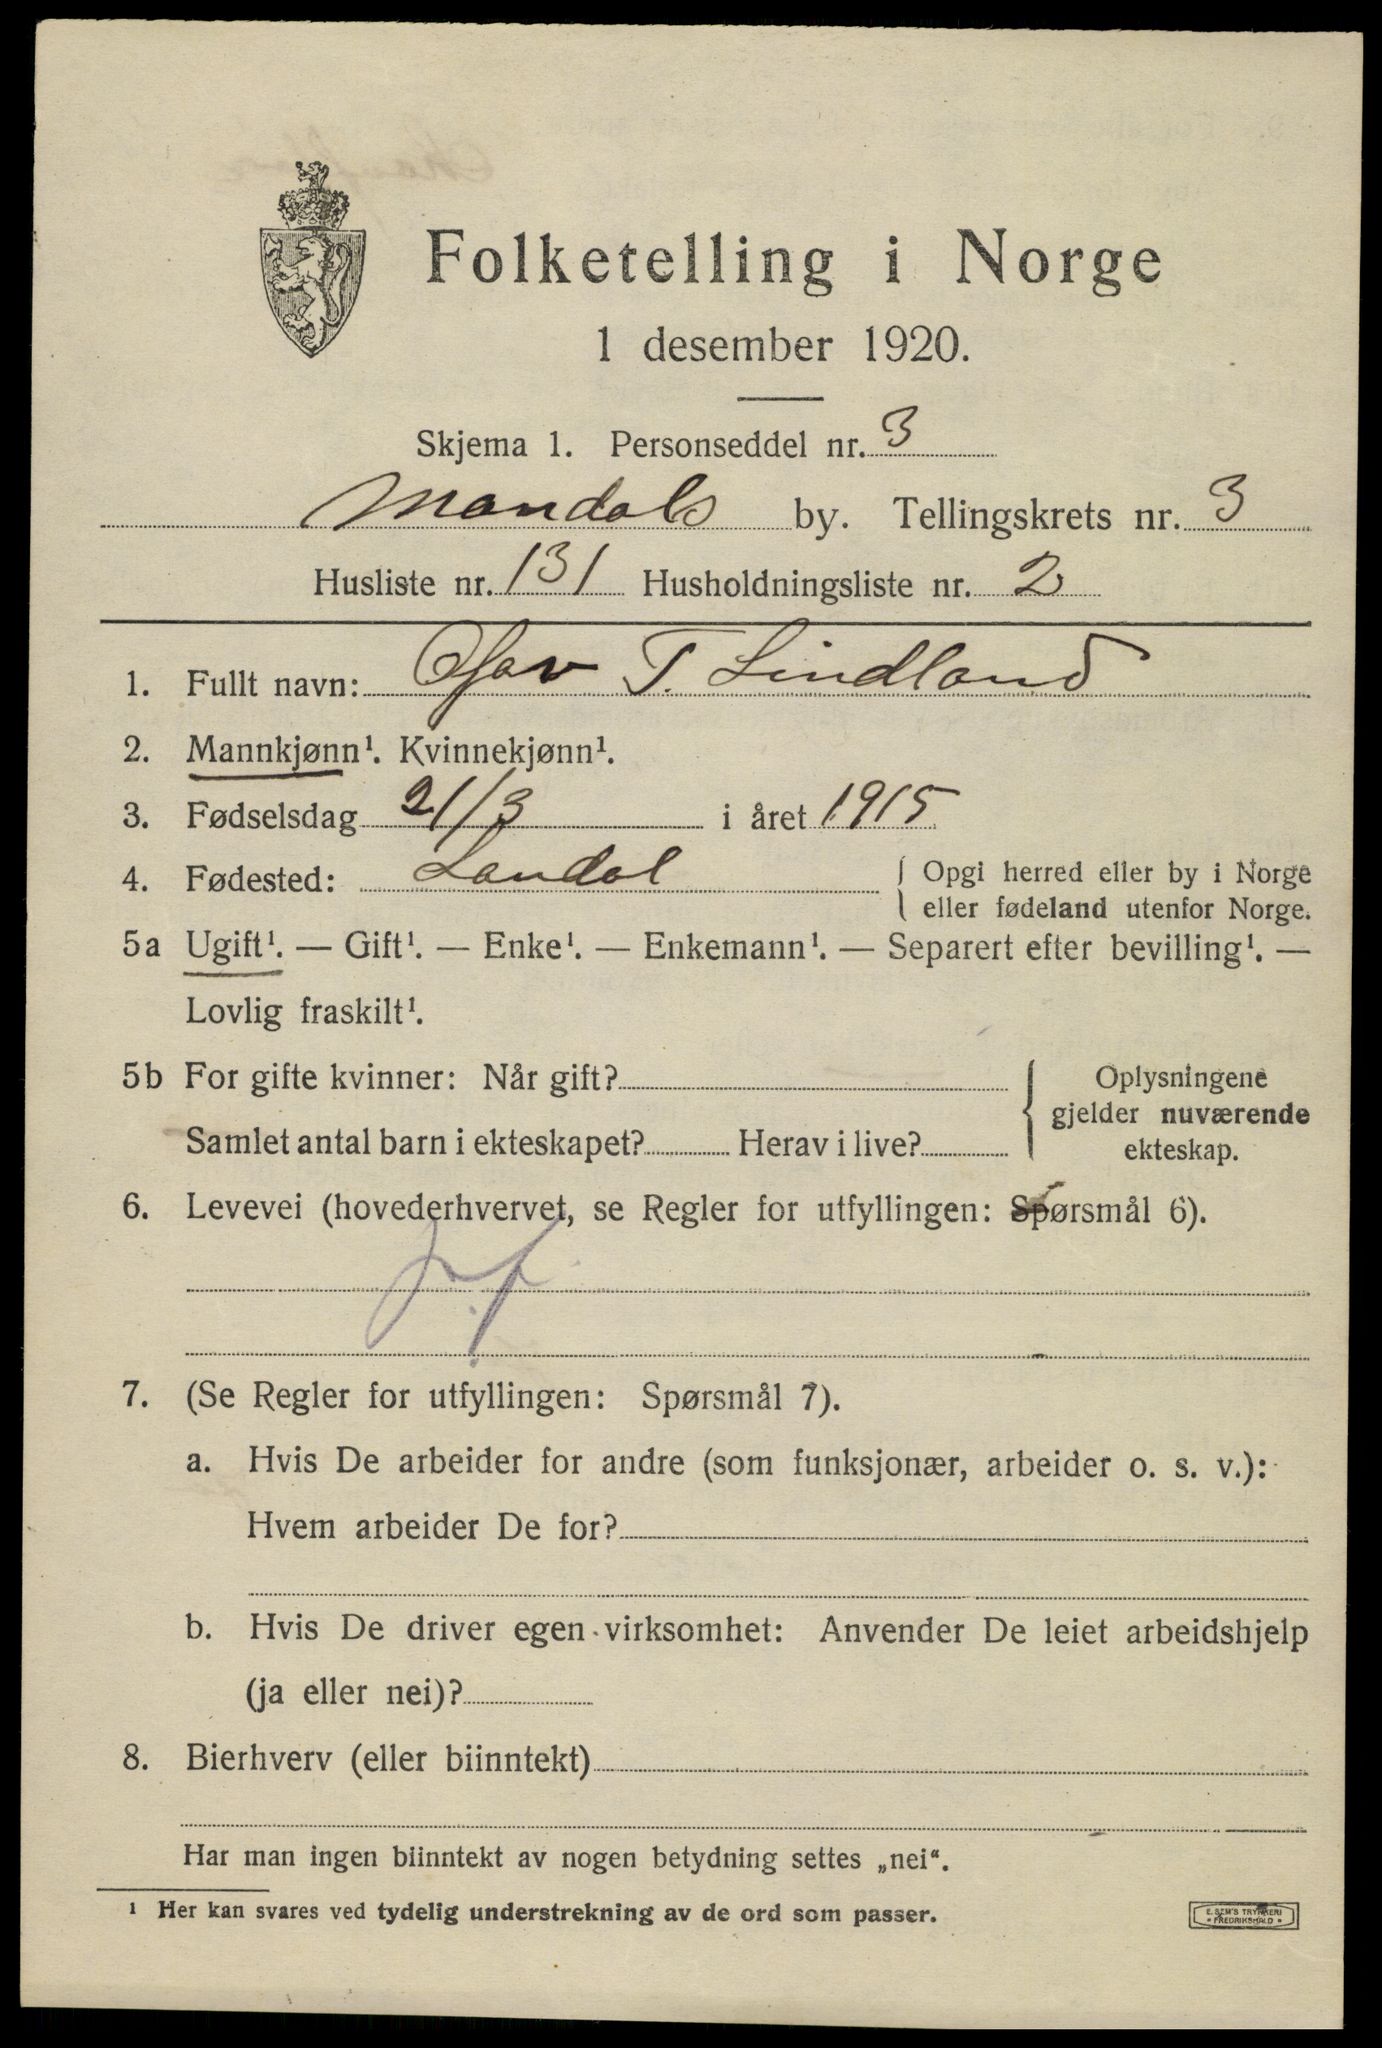 Folketelling i Norge
1 desember 1920.
Skjema 1. Personseddel nr. 3
Mandals by. Tellingskrets nr. 3
Husliste nr. 131 Husholdningsliste nr. 2
1. Fullt navn: Olav T. Lindland
2. Mannkjønn¹. Kvinnekjønn¹.
3. Fødselsdag 21/3 i året 1915
4. Fødested: Laudal { Opgi herred eller by i Norge
eller fødeland utenfor Norge.
5a Ugift¹. — Gift¹. — Enke¹. — Enkemann¹. — Separert efter bevilling¹. —
Lovlig fraskilt¹.
5b For gifte kvinner: Når gift?
Samlet antal barn i ekteskapet? Herav i live?
Oplysningene
gjelder nuværende
ekteskap.
6. Levevei (hovederhvervet, se Regler for utfyllingen: Spørsmål 6).
7. (Se Regler for utfyllingen: Spørsmål 7).
a. Hvis De arbeider for andre (som funksjonær, arbeider o. s. v.):
Hvem arbeider De for?
b. Hvis De driver egen virksomhet: Anvender De leiet arbeidshjelp
(ja eller nei)?
8. Bierhverv (eller biinntekt)
Har man ingen biinntekt av nogen betydning settes „nei“.
¹ Her kan svares ved tydelig understrekning av de ord som passer.
E. SEM'S TRYKKERI
• FREDRIKSHALD •